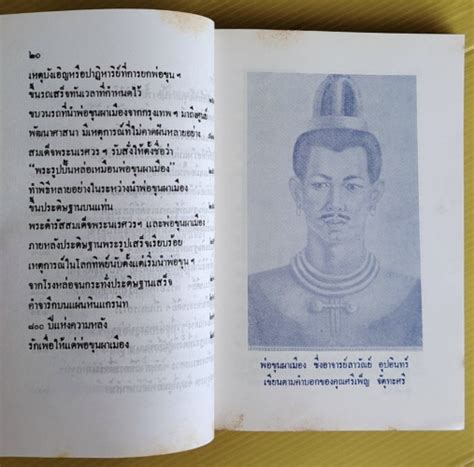 ๒๐
เหตุบังเอิญหรือปาฏิหาริย์ที่การยกพ่อขุน ฯ
ขึ้นรถเสร็จทันเวลาที่กำหนดไว้
ขบวนรถที่นำพ่อขุนผาเมืองจากกรุงเทพ ฯ มาถึงศูนย์
พัฒนาศาสนา มีเหตุการณ์ที่ไม่คาดฝันหลายอย่าง
สมเด็จพระนเรศวร ฯ รับสั่งให้ตั้งชื่อว่า
“พระรูปปั้นหล่อเหมือนพ่อขุนผาเมือง”
ทำพิธีหลายอย่างในระหว่างนำพ่อขุนผาเมือง
ขึ้นประดิษฐานบนแท่น
พระดำรัสสมเด็จพระนเรศวร ฯ และพ่อขุนผาเมือง
ภายหลังประดิษฐานพระรูปเสร็จเรียบร้อย
เหตุการณ์ในโลกทิพย์นับตั้งแต่เริ่มนำพ่อขุน ฯ
จากโรงหล่อจนกระทั่งประดิษฐานเสร็จ
คำจารึกบนแผ่นหินแกรนิท
๘๐๐ ปีแห่งความหลัง
รักเพื่อให้แด่พ่อขุนผาเมือง
พ่อขุนผาเมือง ซึ่งอาจารย์ลาวัณย์ อุปอินทร์
เขียนตามคำบอกของคุณศรีเพ็ญ จัตุทะศรี